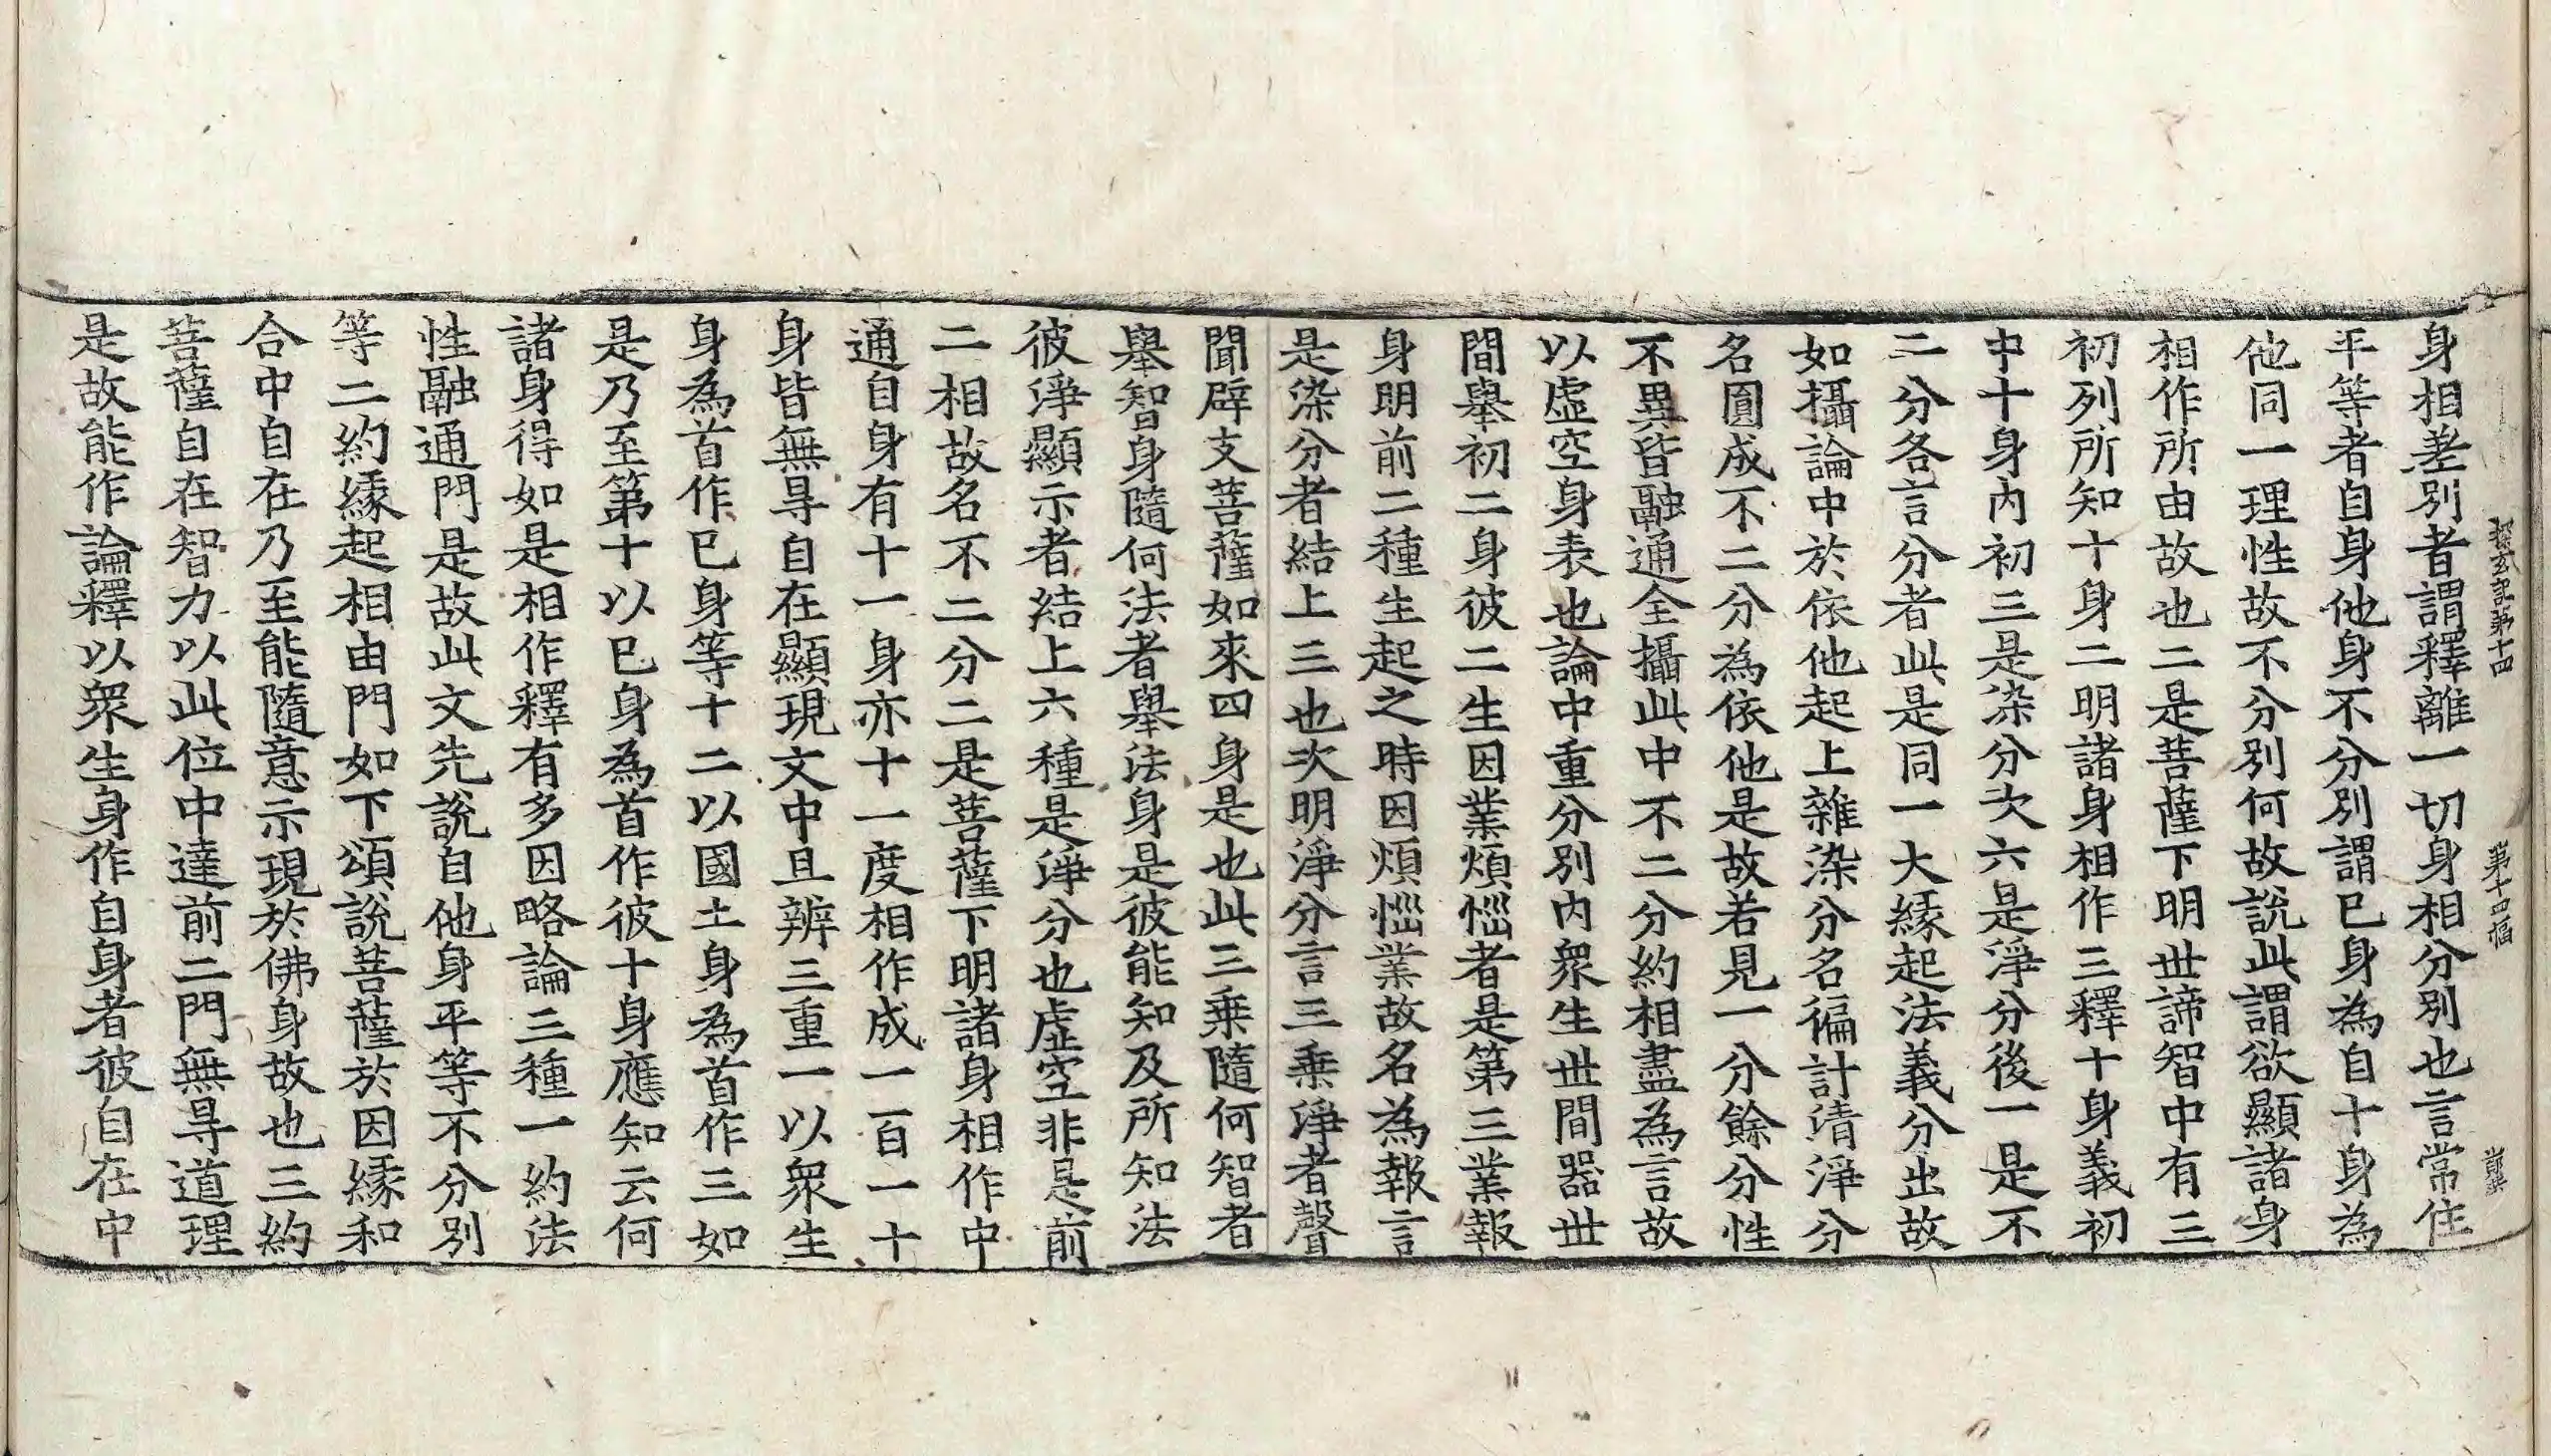 探玄記第十四 第十四幅
身相差別者謂釋離一切身相分別也言常住
平等者自身他身不分別謂已身為自十身為
他同一理性故不分別何故說此謂欲顯諸身
相作所由故也二是菩薩下明世諦智中有三
初列所知十身二明諸身相作三釋十身義初
中十身內初三是染分次六是淨分後一是不
二分各言分者此是同一大縁起法義分出故
如攝論中於依他起上雜染分名徧計清淨分
名圓成不二分為依他是故若見一分餘分性
不異皆融通全攝此中不二分約相盡為言故
以虛空身表也論中重分別內眾生世間器世
間舉初二身彼二生因業煩惱者是第三業報
身明前二種生起之時因煩惱業故名為報言
是染分者結上三也次明淨分言三乗淨者聲
聞辟支菩薩如來四身是也此三乗隨何智者
舉智身隨何法者舉法身是彼能知及所知法
彼淨顯示者結上六種是淨分也虛空非是前
二相故名不二分二是菩薩下明諸身相作中
通自身有十一身亦十一度相作成一百一十
身皆無㝵自在顯現文中且辨三重一以眾生
身為首作已身等十二以國土身為首作三如
是乃至第十以已身為首作彼十身應知云何
諸身得如是相作釋有多因略論三種一約法
性融通門是故此文先說自他身平等不分別
等二約縁起相由門如下頌說菩薩於因縁和
合中自在乃至能隨意示現於佛身故也三約
菩薩自在智力以此位中達前二門無㝵道理
是故能作論釋以眾生身作自身者彼自在中